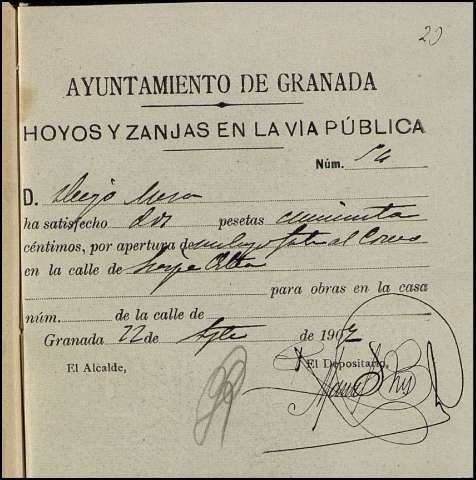 20
AYUNTAMIENTO DE GRANADA
HOYOS Y ZANJAS EN LA VIA PÚBLICA
Núm. 54
D. Diego Mesa
ha satisfecho dos pesetas cincuenta
céntimos, por apertura de al
en la calle de Alta
para obras en la casa
núm. de la calle de
Granada 22 de de 1907
El Alcalde, El Depositario,